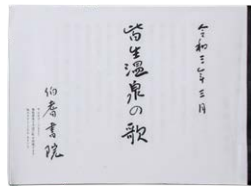 令和三年三月
皆生温泉の歌
伯耆書院